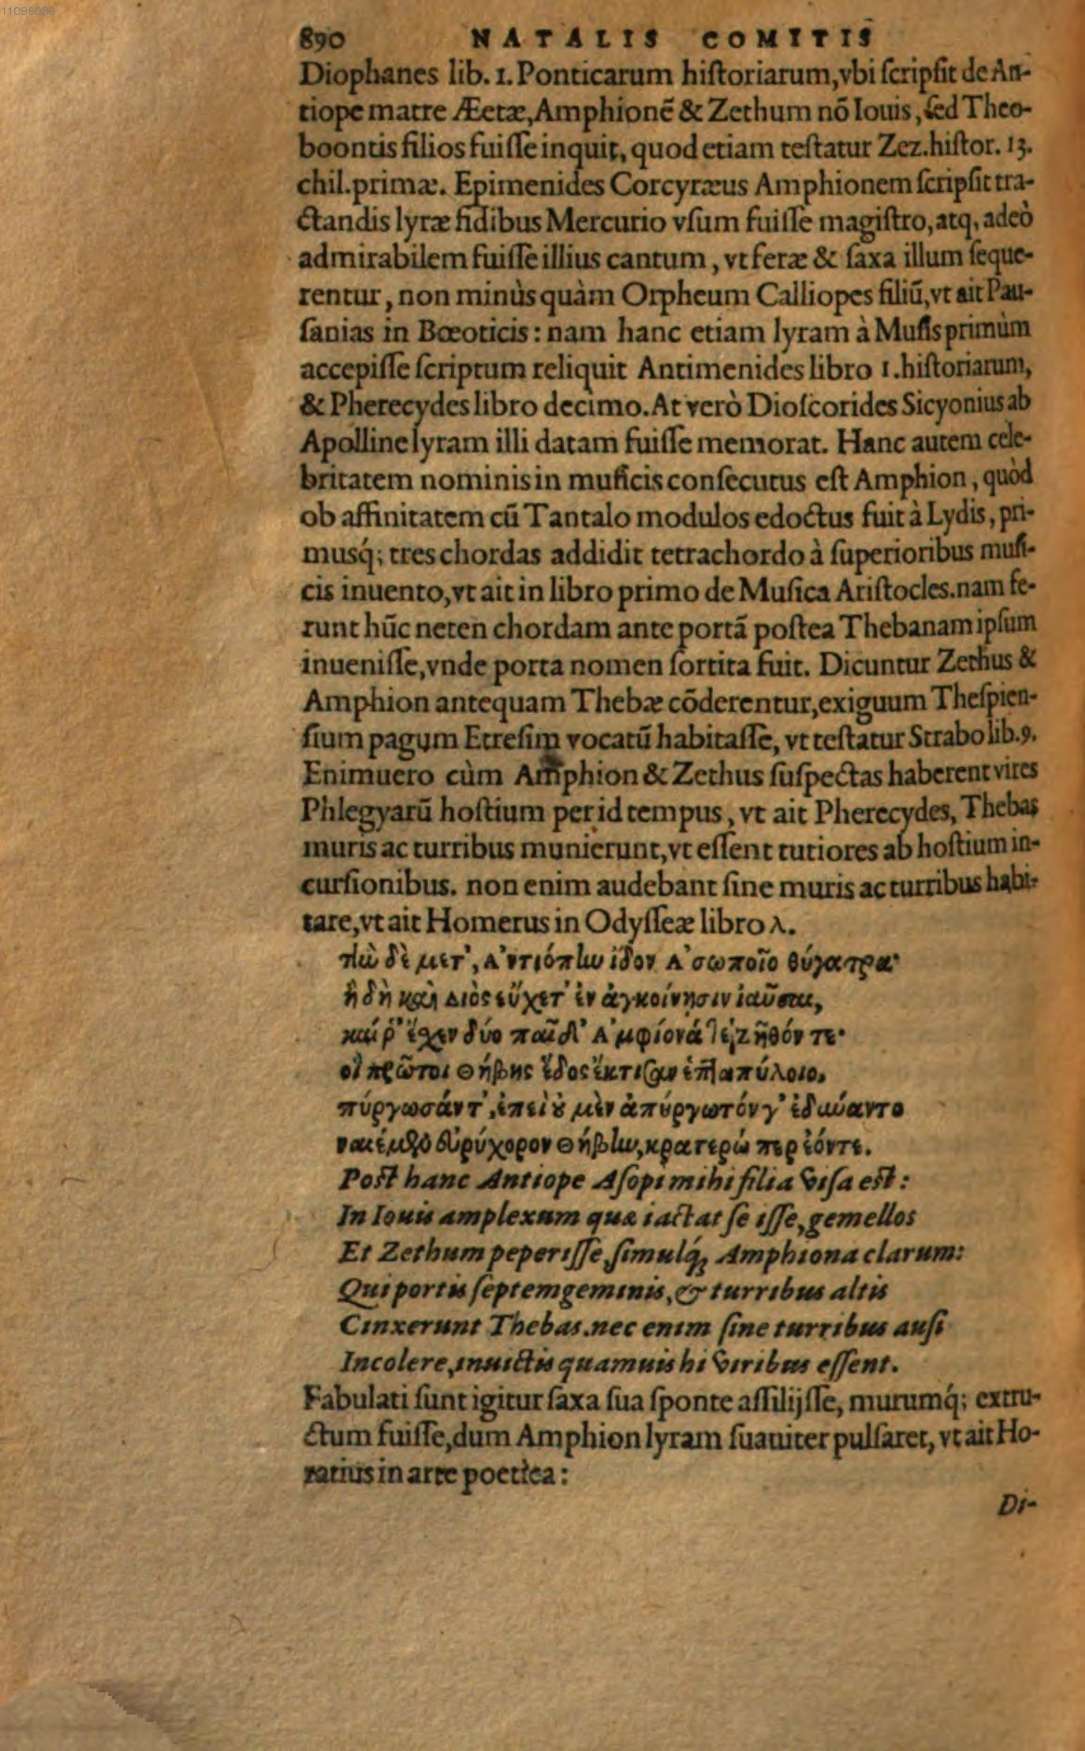 11098089
890 NATALIS COMITIS
Diophanes lib. 1. Ponticarum hiſtoriarum, vbi ſcripſit de An-
tiope matre Æetæ, Amphionē & Zethum nō Iouis, ſed Theo-
boontis filios fuiſſe inquit, quod etiam teſtatur Zez. hiſtor. 13.
chil. primæ. Epimenides Corcyræus Amphionem ſcripſit tra-
ctandis lyræ fidibus Mercurio vſum fuiſſe magiſtro, atq, adeò
admirabilem fuiſſe illius cantum, vt feræ & ſaxa illum ſeque-
rentur, non minùs quàm Orpheum Calliopes filiū, vt ait Pau-
ſanias in Bœoticis: nam hanc etiam lyram à Muſis primùm
accepiſſe ſcriptum reliquit Antimenides libro 1. hiſtoriarum,
& Pherecydes libro decimo. At verò Dioſcorides Sicyonius ab
Apolline lyram illi datam fuiſſe memorat. Hanc autem cele-
britatem nominis in muſicis conſecutus eſt Amphion, quòd
ob affinitatem cū Tantalo modulos edoctus fuit à Lydis, pri-
musq́; tres chordas addidit tetrachordo à ſuperioribus muſi-
cis inuento, vt ait in libro primo de Muſica Ariſtocles. nam fe-
runt hūc neten chordam ante portā poſtea Thebanam ipſum
inueniſſe, vnde porta nomen ſortita fuit. Dicuntur Zethus &
Amphion antequam Thebæ cōderentur, exiguum Theſpien-
ſium pagum Etreſim vocatū habitaſſe, vt teſtatur Strabo lib. 9.
Enimuero cùm Amphion & Zethus ſuſpectas haberent vires
Phlegyarū hoſtium per id tempus, vt ait Pherecydes, Thebas
muris ac turribus munierunt, vt eſſent tutiores ab hoſtium in-
curſionibus. non enim audebant ſine muris ac turribus habi-
tare, vt ait Homerus in Odyſſeæ libro λ.
τὴν δὲ μετ', Ἀντιόπην ἴδον Ἀσωποῖο θύγατρα·
ἣ δὴ καὶ Διὸς εὔχετ' ἐν ἀγκοίνησιν ἰαῦσαι,
καί ῥ' ἔχεν δύο παῖδ' Ἀμφίονά τε, Ζῆθόν τε·
οἳ πρῶτοι Θήβης ἕδος ἔκτισαν ἑπταπύλοιο,
πύργωσάντ', ἐπεὶ οὐ μὲν ἀπύργωτόν γ' ἐδύναντο
ναιέμεν εὐρύχορον Θήβην, κρατερώ περ ἐόντε.
Poſt hanc Antiope Aſopi mihi filia viſa eſt:
In Iouis amplexum quæ iactat ſe iſſe, gemellos
Et Zethum peperiſſe, ſimulq́; Amphiona clarum:
Qui portis ſeptemgeminis, & turribus altis
Cinxerunt Thebas. nec enim ſine turribus auſi
Incolere, inuictis quamuis hi viribus eſſent.
Fabulati ſunt igitur ſaxa ſua ſponte aſſilijſſe, murumq́; extru-
ctum fuiſſe, dum Amphion lyram ſuauiter pulſaret, vt ait Ho-
ratius in arte poetica:
Di-